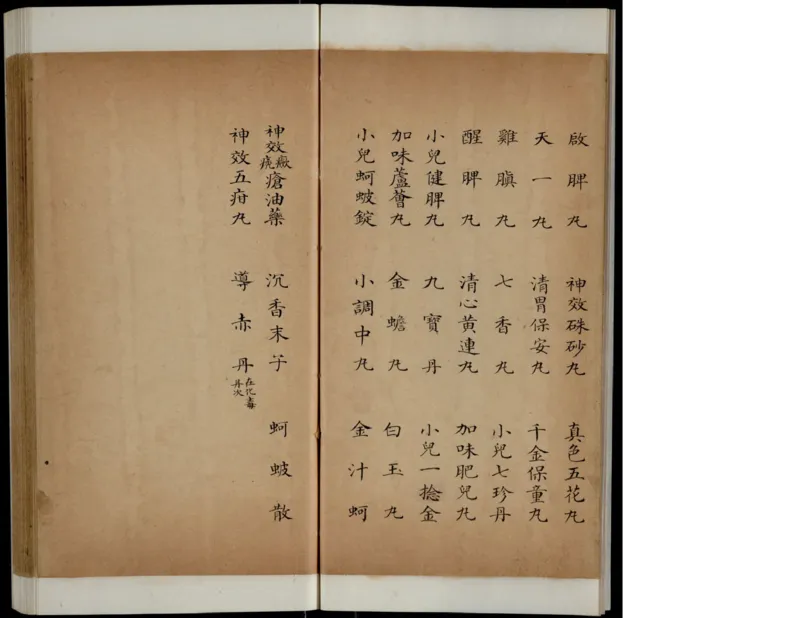 啟脾丸 神效硃砂丸 真色五花丸
天一丸 清胃保安丸 千金保童丸
雞臏丸 七香丸 小兒七珍丹
醒脾丸 清心黃連丸 加味肥兒丸
小兒健脾丸 九寶丹 小兒一捻金
加味蘆薈丸 金蟾丸 白玉丸
小兒蚵蚾錠 小調中丸 金汁蚵
神效瘢疣瘡油藥 沉香末子 蚵蚾散
神效五疳丸 導赤丹在化毒丹次